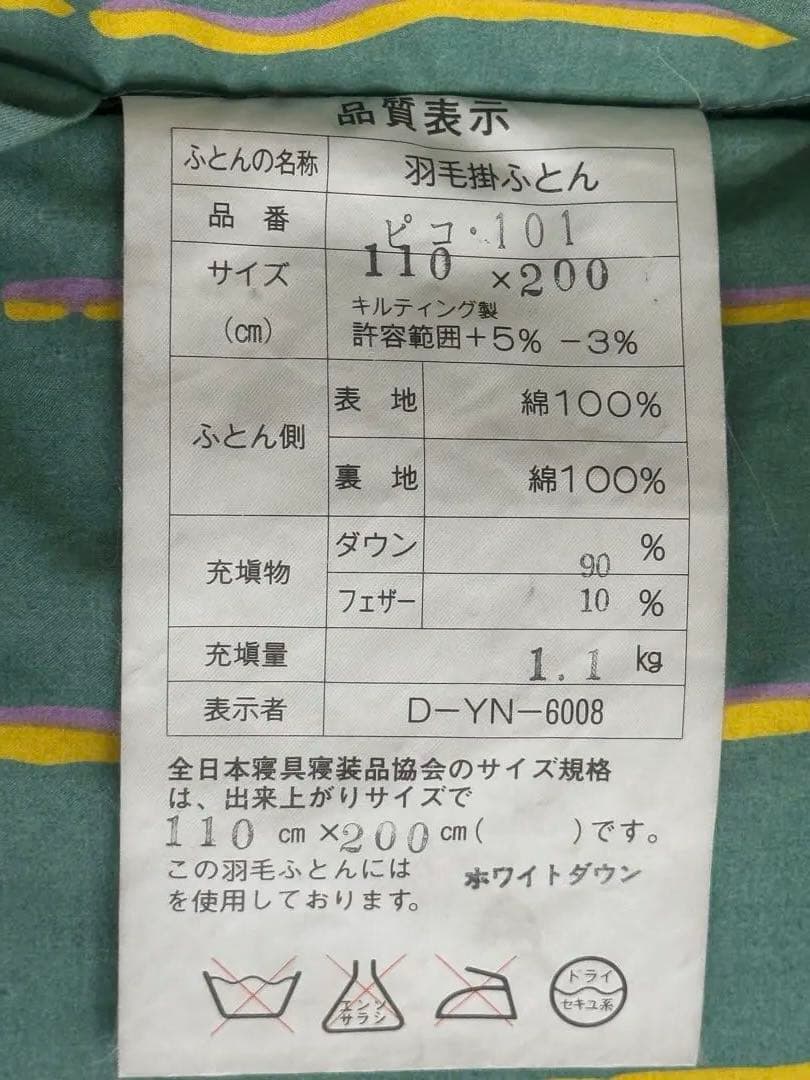 品質表示
ふとんの名称 羽毛掛ふとん
品 番 ピコ・101
サイズ 110 ×200
キルティング製
(cm) 許容範囲+5% −3%
ふとん側 表 地 綿100%
裏 地 綿100%
充塡物 ダウン 90 %
フェザー 10 %
充塡量 1.1 kg
表示者 D−YN−6008
全日本寝具寝装品協会のサイズ規格
は、出来上がりサイズで
110 cm ×200 cm( )です。
この羽毛ふとんには ホワイトダウン
を使用しております。
エンソ
サラシ
ドライ
セキユ系